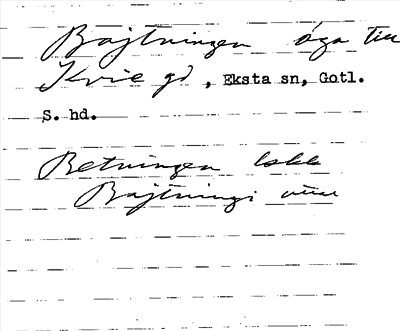 Bajtningen äga till
Kvie gd, Eksta sn, Gotl.
S. hd.
Betningen
Bajtningi